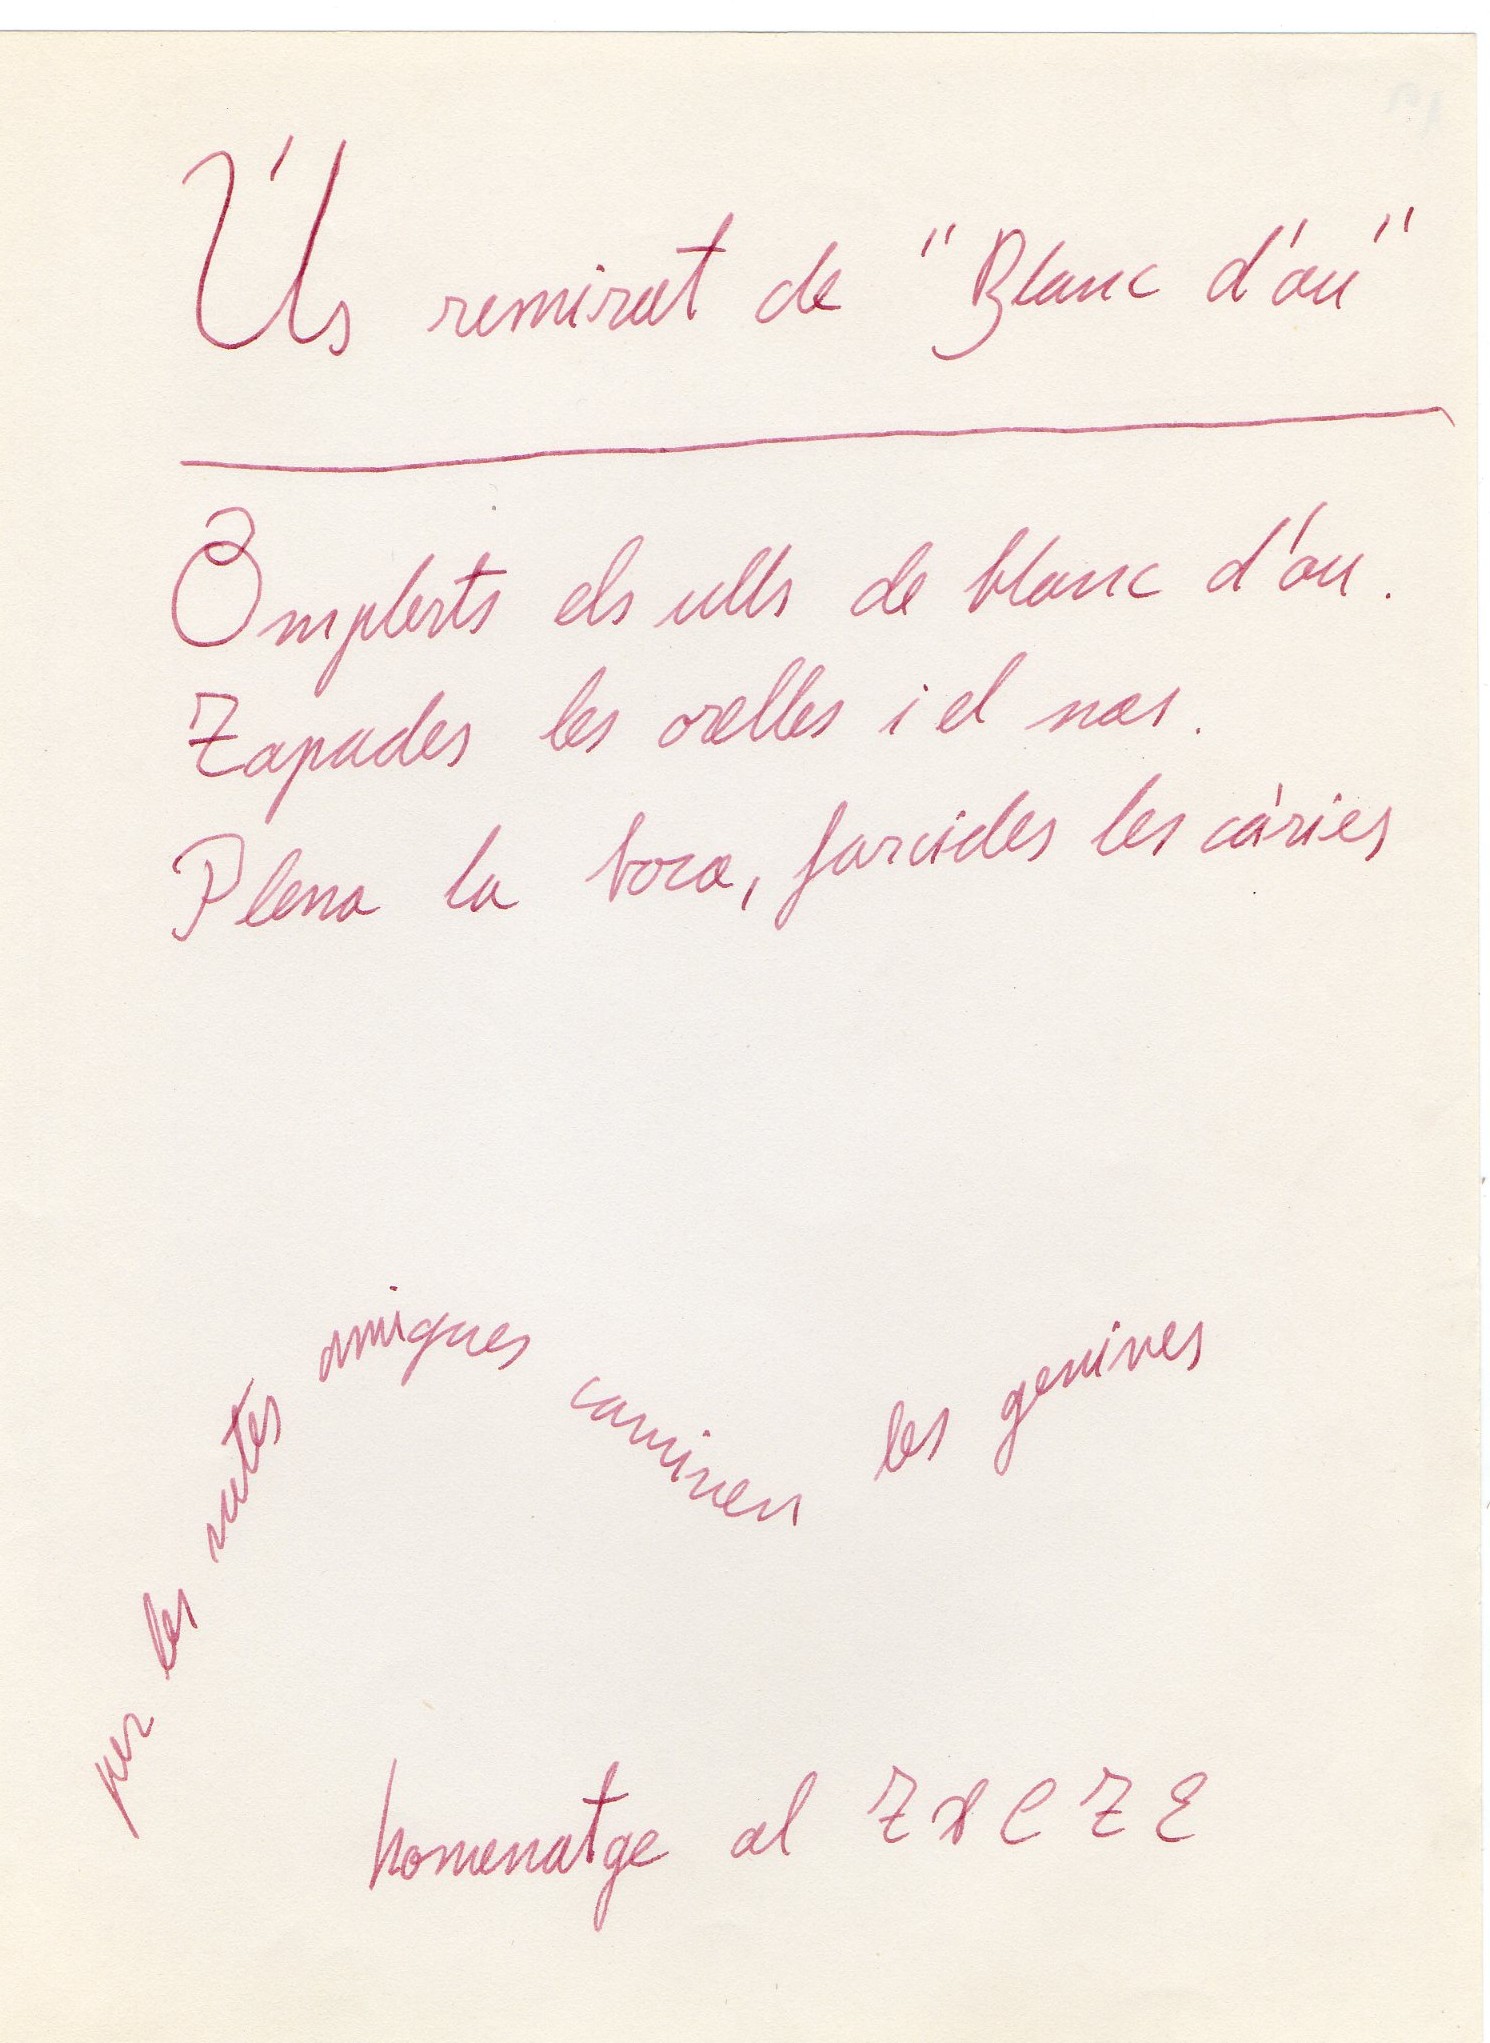 Ús remirat de "Blanc d'ou"
Omplerts els ulls de blanc d'ou.
Zapades les orelles i el nas.
Plena la boca, farcides les càries
per les rutes amigues caminen les genives
homenatge al